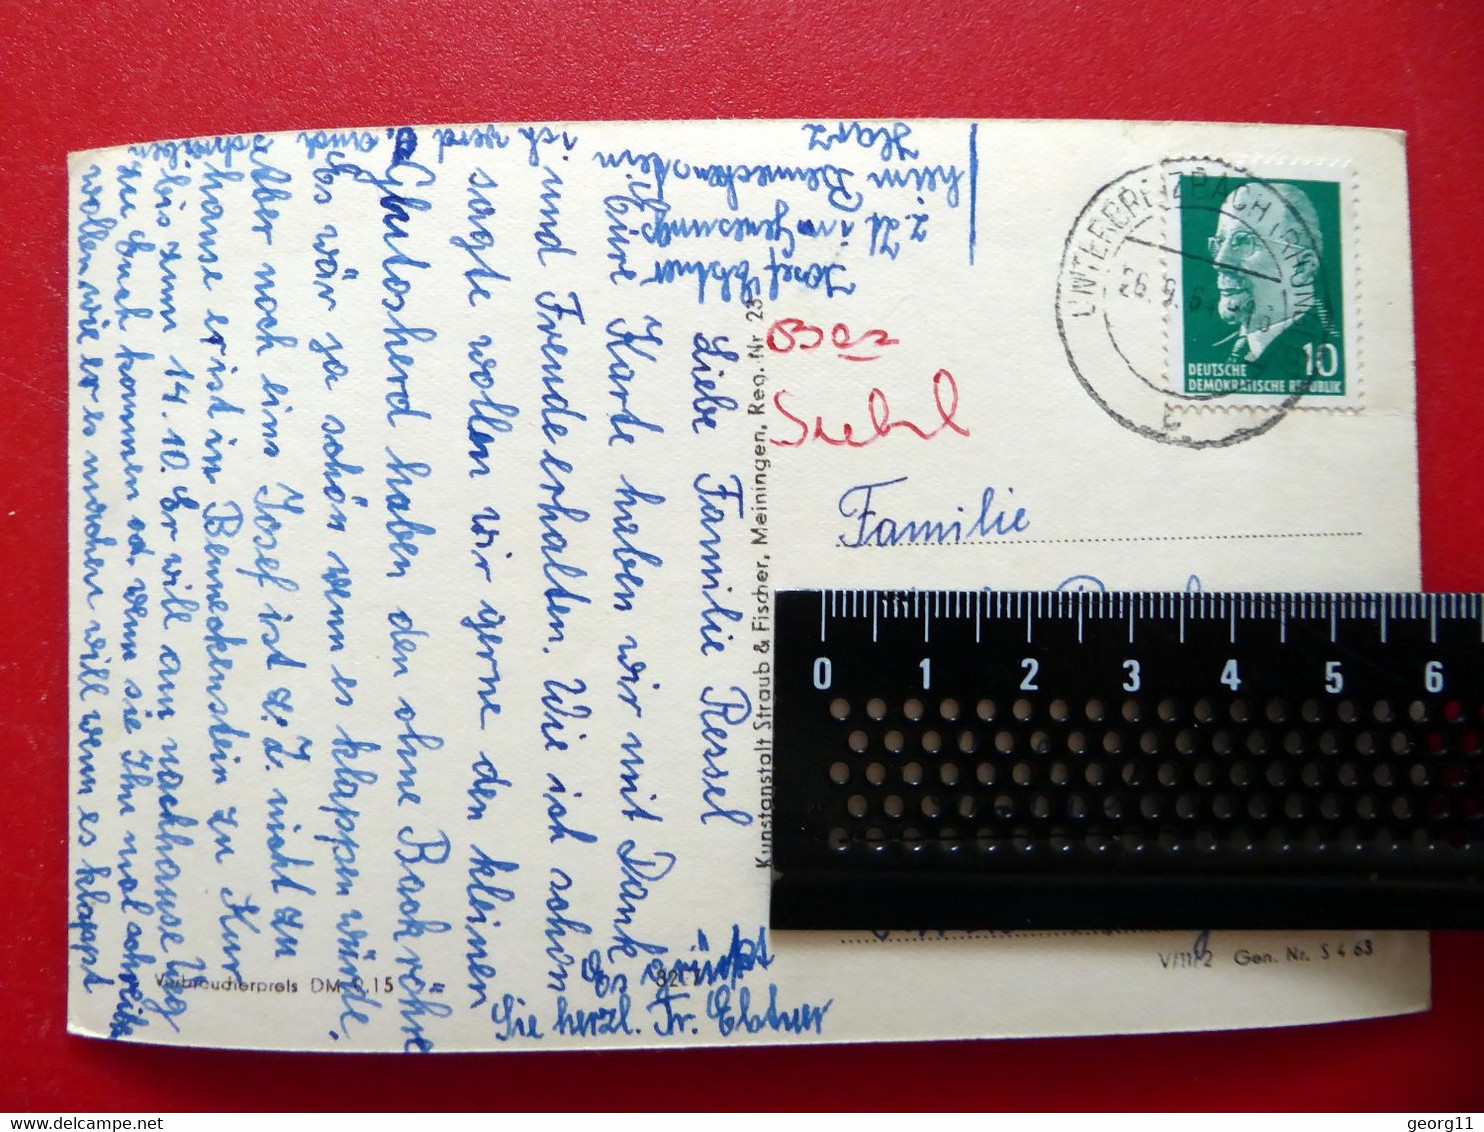 Liebe Familie Ressel
Eure Karte haben wir mit Dank
und Freude erhalten. Wie ich schon
sagte wollen wir gerne den kleinen
Glutosherd haben den ohne Backröhre
Es wär ja schön wenn es klappen würde.
Aber noch eins Josef ist z. Z. nicht zu
hause er ist in Benneckenstein zu Kur
bis zum 14. 10. Er will am nachhauseweg
zu Euch kommen od. wenn sie Ihn mal schreiben
wollen wie er es machen will wenn es klappt
ich werd
auch
schreiben
Es grüßt
Sie herzl. Fr. Elstner
Josef Elstner
z. Zt im Genesungs-
heim Benneckenstein
Harz
Kunstanstalt Straub & Fischer, Meiningen, Reg. Nr. 23
Verbraucherpreis DM 0,15
UNTERBREIZBACH (RHÖN)
26.9.6
DEUTSCHE
DEMOKRATISCHE REPUBLIK
10
Familie
0 1 2 3 4 5 6
V/11/2 Gen. Nr. S 4 63
georg11